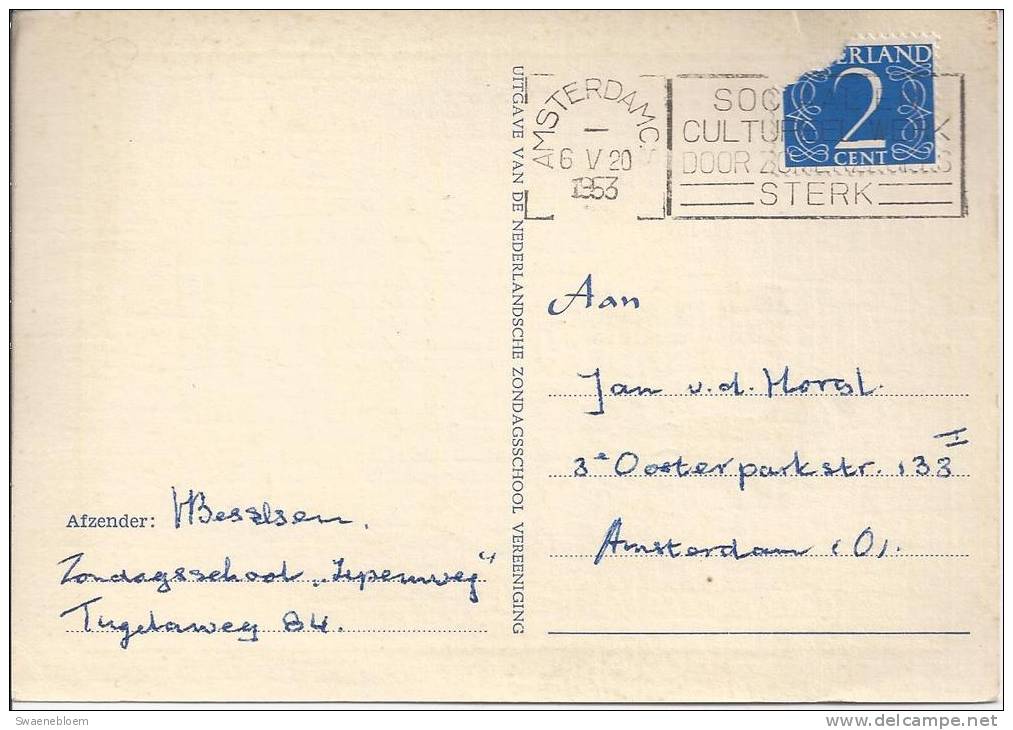 ERLAND
2
CENT
AMSTERDAM C.S
6 V 20
1953
SOC
CULTUREEL WERK
DOOR
STERK
UITGAVE VAN DE NEDERLANDSCHE ZONDAGSSCHOOL VEREENIGING
Aan
Jan v.d. Horst.
3e Oosterparkstr. 133 I
Amsterdam (O).
Afzender: HBesselsen.
Zondagsschool „Iepenweg"
Tugelaweg 84.
Swaenebloem
www.delcampe.net